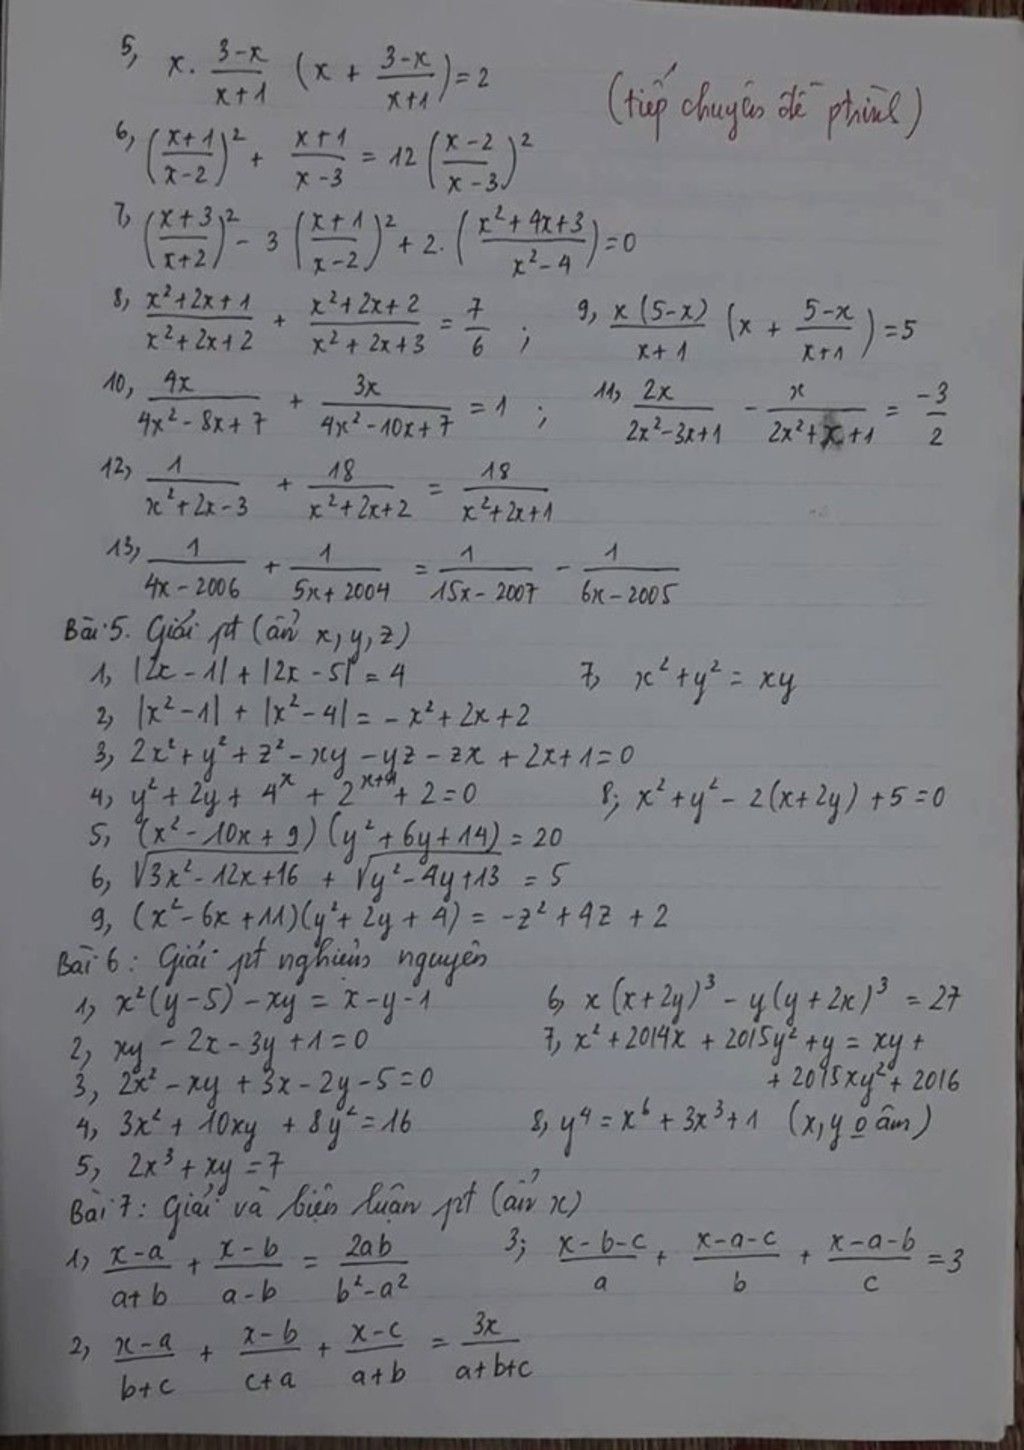 5, x. (3-x)/(x+1) (x + (3-x)/(x+1)) = 2
(tiếp chuyên đề ptrình)
6, ((x+1)/(x-2))² + (x+1)/(x-3) = 12 ((x-2)/(x-3))²
7, ((x+3)/(x+2))² - 3 ((x+1)/(x-2))² + 2. ((x²+4x+3)/(x²-4)) = 0
8, (x²+2x+1)/(x²+2x+2) + (x²+2x+2)/(x²+2x+3) = 7/6 ; 9, (x(5-x))/(x+1) (x + (5-x)/(x+1)) = 5
10, 4x/(4x²-8x+7) + 3x/(4x²-10x+7) = 1 ; 11, 2x/(2x²-3x+1) - x/(2x²+x+1) = -3/2
12, 1/(x²+2x-3) + 18/(x²+2x+2) = 18/(x²+2x+1)
13, 1/(4x-2006) + 1/(5x+2004) = 1/(15x-2007) - 1/(6x-2005)
Bài 5. Giải pt (ẩn x, y, z)
1, |2x-1| + |2x-5| = 4 7, x²+y² = xy
2, |x²-1| + |x²-4| = -x²+2x+2
3, 2x²+y²+z²-xy-yz-zx+2x+1=0
4, y²+2y+4ˣ+2ˣ⁺¹+2=0 8; x²+y²-2(x+2y)+5=0
5, (x²-10x+9)(y²+6y+14) = 20
6, √(3x²-12x+16) + √(y²-4y+13) = 5
9, (x²-6x+11)(y²+2y+4) = -z²+4z+2
Bài 6: Giải pt nghiệm nguyên
1, x²(y-5)-xy = x-y-1 6, x(x+2y)³-y(y+2x)³ = 27
2, xy-2x-3y+1=0 7, x²+2014x+2015y²+y = xy+
3, 2x²-xy+3x-2y-5=0 +2015xy²+2016
4, 3x²+10xy+8y²=16 8, y⁴=x⁶+3x³+1 (x,y o âm)
5, 2x³+xy=7
Bài 7: Giải và biện luận pt (ẩn x)
1, (x-a)/(a+b) + (x-b)/(a-b) = 2ab/(b²-a²) 3; (x-b-c)/a + (x-a-c)/b + (x-a-b)/c = 3
2, (x-a)/(b+c) + (x-b)/(c+a) + (x-c)/(a+b) = 3x/(a+b+c)